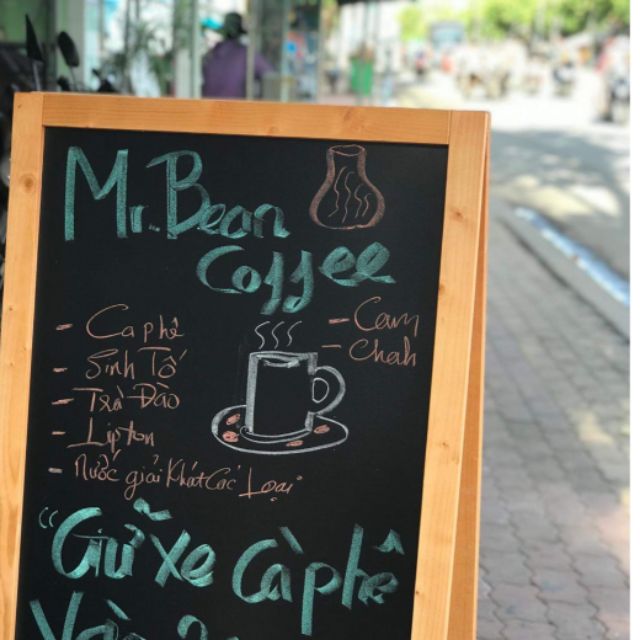 Mr. Bean
Coffee
- Cam
- Chanh
- Cà phê
- Sinh Tố
- Trà Đào
- Lipton
- Nước giải Khát Các Loại
"Giữ Xe Cà phê